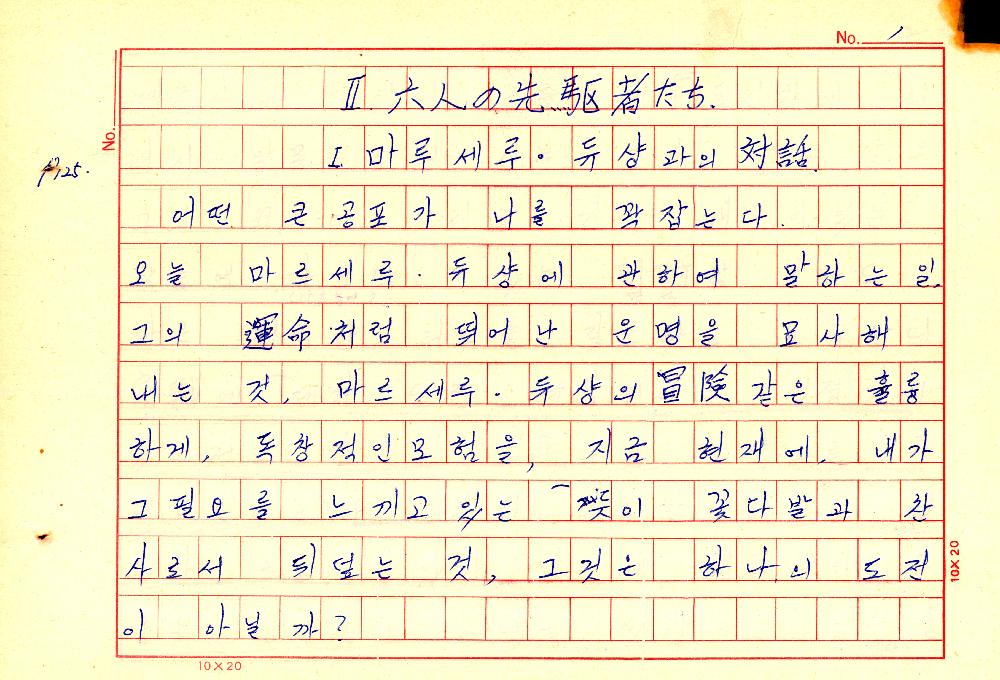 No. 1
II. 六人の先駆者たち.
No.
I. 마루세루·듀샹과의 対話.
P.125.
어떤 큰 공포가 나를 꽉잡는다.
오늘 마르세루·듀샹에 관하여 말하는 일.
그의 運命처럼 뛰어난 운명을 묘사해
내는 것, 마르세루·듀샹의 冒険같은 훌륭
하게, 독창적인모험을, 지금 현재에, 내가
그필요를 느끼고 있는 뜻이 꽃다발과 찬
사로서 뒤덮는 것, 그것은 하나의 도전
이 아닐까?
10×20
10×20